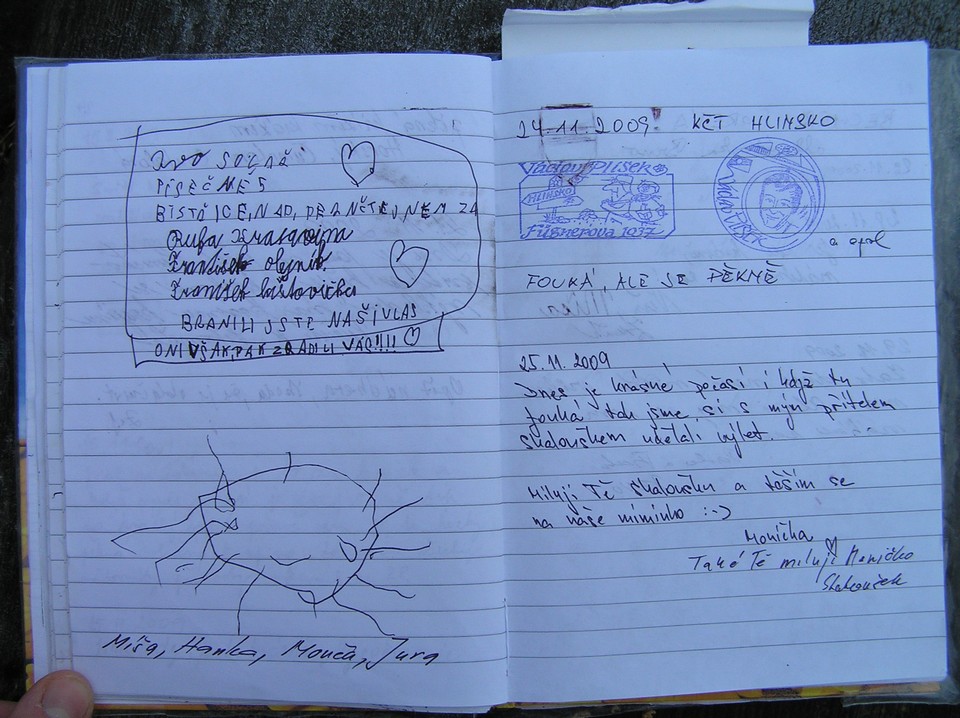 PÍSEČNÉ 5
František olejník
František
BRANILI JSTE NAŠI VLAS
ONI VŠAK PAK ZRADILI VÁS!!!!
Míša, Hanka, Monča, Jura
24.11.2009 KČT HLINSKO
Václav PLÍŠEK
HLINSKO
Fűgnerova 1937
Václav PLÍŠEK
a spol
FOUKÁ, ALE JE PĚKNĚ
25.11.2009
Dnes je krásné počasí i když tu
fouká tak jsme si s mým přítelem
skalouškem udělali výlet.
Miluji Tě skaloušku a těším se
na naše miminko :-)
Monička
Také Tě miluji Moničko
Skaloušek